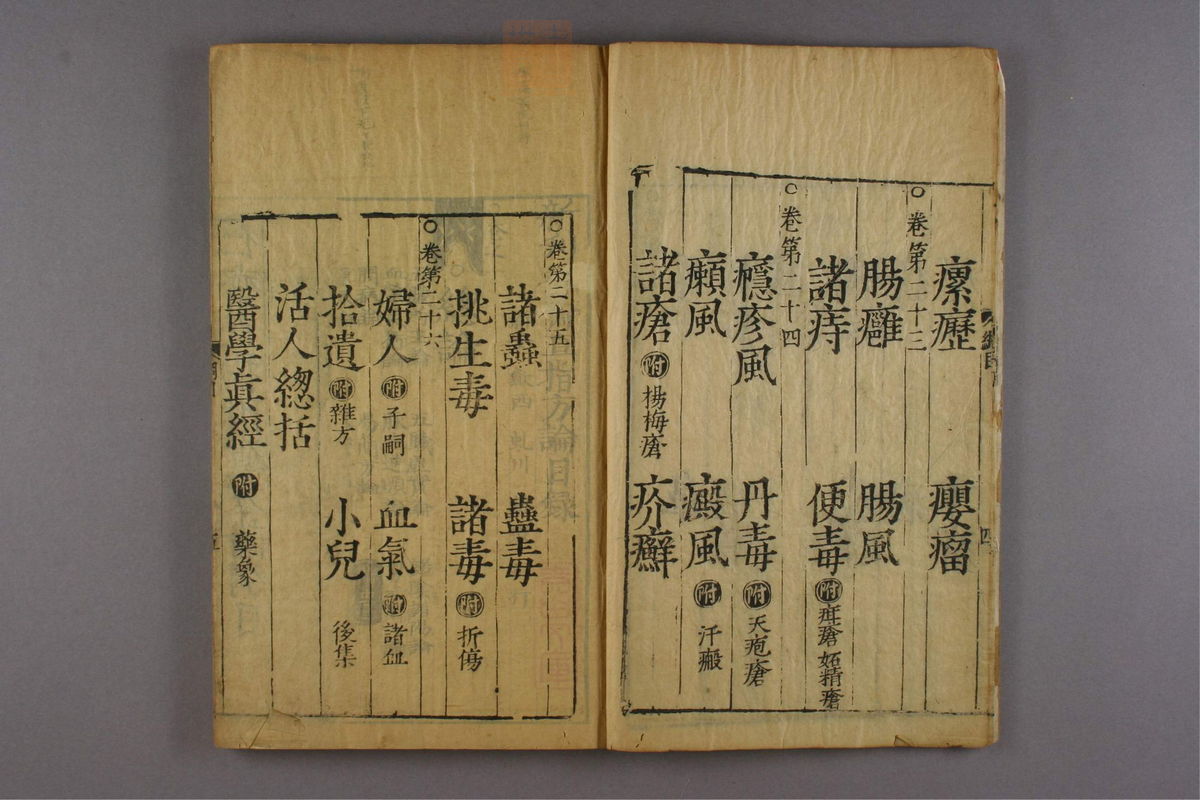 瘰癧 癭瘤
○卷第二十三
腸癰 腸風
諸痔 便毒 附 疳瘡 妬精瘡
○卷第二十四
癮疹風 丹毒 附 天疱瘡
癩風 癜風 附 汗瘢
諸瘡 附 楊梅瘡 疥癬
○卷第二十五
諸蟲 蠱毒
挑生毒 諸毒 附 折傷
○卷第二十六
婦人 附 子嗣 血氣 附 諸血
拾遺 附 雜方 小兒 後集
活人總括
醫學眞經 附 藥象